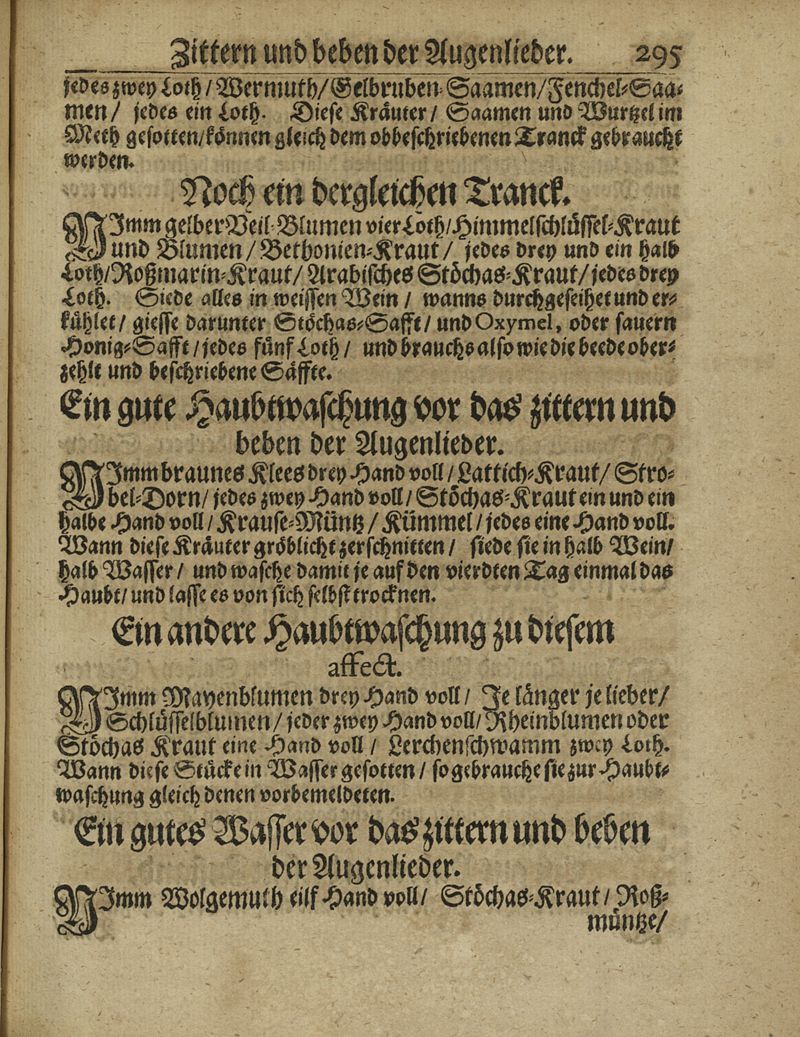 Zittern und beben der Augenlieder. 295
jedes zwey Loth / Wermuth / Gelbruben-Saamen / Fenchel-Saa-
men / jedes ein Loth. Diese Kräuter / Saamen und Wurtzel im
Meth gesotten / können gleich dem obbeschriebenen Tranck gebraucht
werden.
Noch ein dergleichen Tranck.
NImm gelber Veil-Blumen vier Loth / Himmelschlüssel-Kraut
und Blumen / Bethonien-Kraut / jedes drey und ein halb
Loth / Roßmarin-Kraut / Arabisches Stöchas-Kraut / jedes drey
Loth. Siede alles in weissen Wein / wanns durchgeseihet und er-
kühlet / giesse darunter Stöchas-Safft / und Oxymel, oder sauern
Honig-Safft / jedes fünf Loth / und brauchs also wie die beede ober-
zehlt und beschriebene Säffte.
Ein gute Haubtwaschung vor das zittern und
beben der Augenlieder.
NImm braunes Klees drey Hand voll / Lattich-Kraut / Stro-
bel-Dorn / jedes zwey Hand voll / Stöchas-Kraut ein und ein
halbe Hand voll / Krause-Müntz / Kümmel / jedes eine Hand voll.
Wann diese Kräuter gröblicht zerschnitten / siede sie in halb Wein /
halb Wasser / und wasche damit je auf den vierdten Tag einmal das
Haubt / und lasse es von sich selbst trocknen.
Ein andere Haubtwaschung zu diesem
affect.
NImm Mayenblumen drey Hand voll / Je länger je lieber /
Schlüsselblumen / jeder zwey Hand voll / Rheinblumen oder
Stöchas Kraut eine Hand voll / Lerchenschwamm zwey Loth.
Wann diese Stücke in Wasser gesotten / so gebrauche sie zur Haubt-
waschung gleich denen vorbemeldeten.
Ein gutes Wasser vor das zittern und beben
der Augenlieder.
NImm Wolgemuth eilf Hand voll / Stöchas-Kraut / Roß-
müntze /